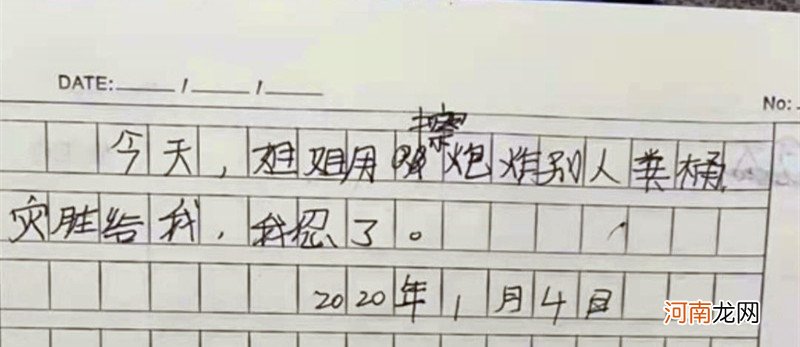 DATE: / /
No:
今天，姐姐用擦炮炸别人粪桶，
灾胜给我，我忍了。
2020年1月4日
河南龙网